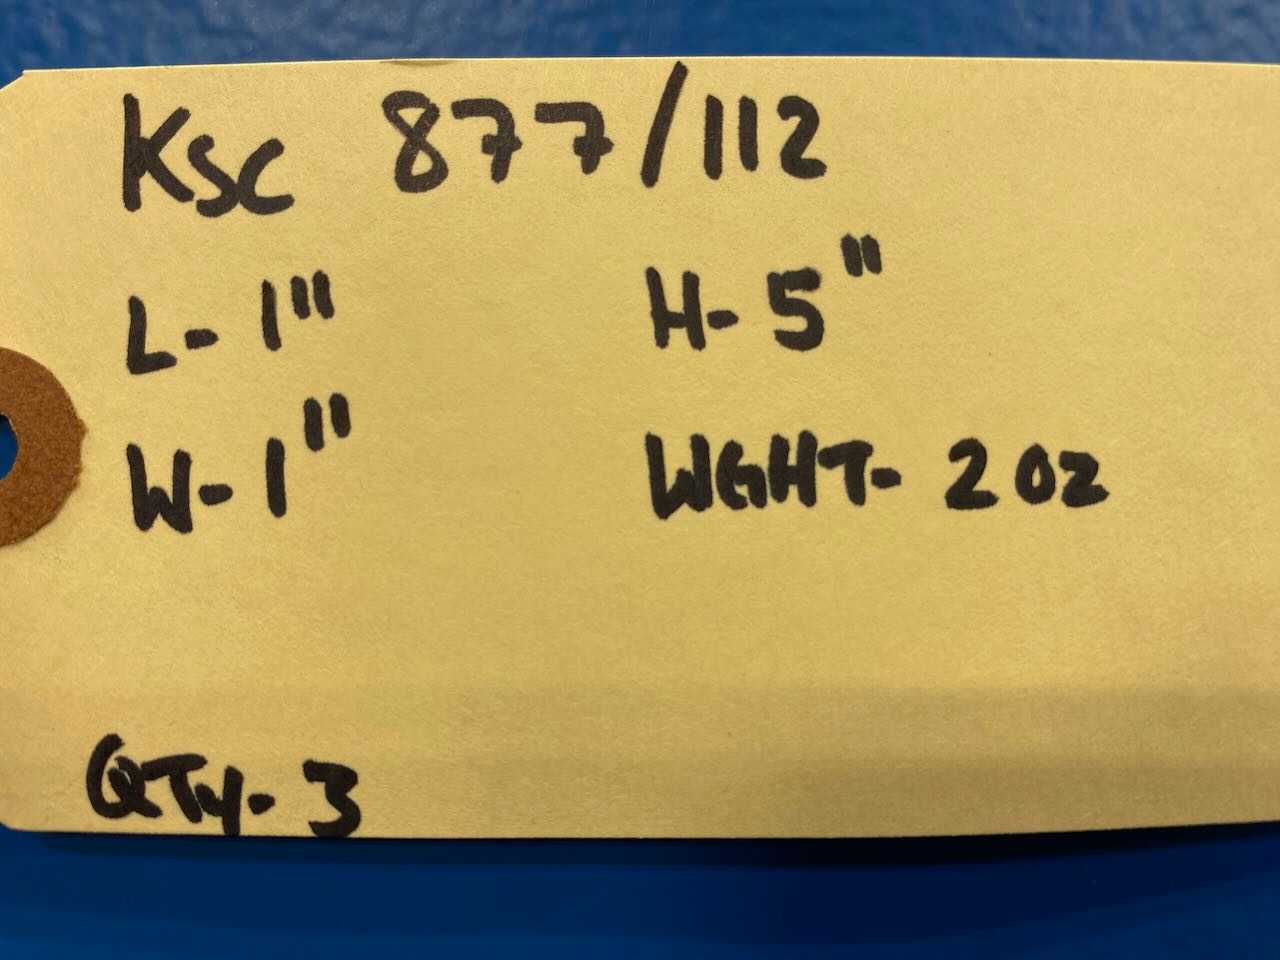 KSC 877/112
L- 1" H- 5"
W- 1" WGHT- 2 oz
QTy- 3